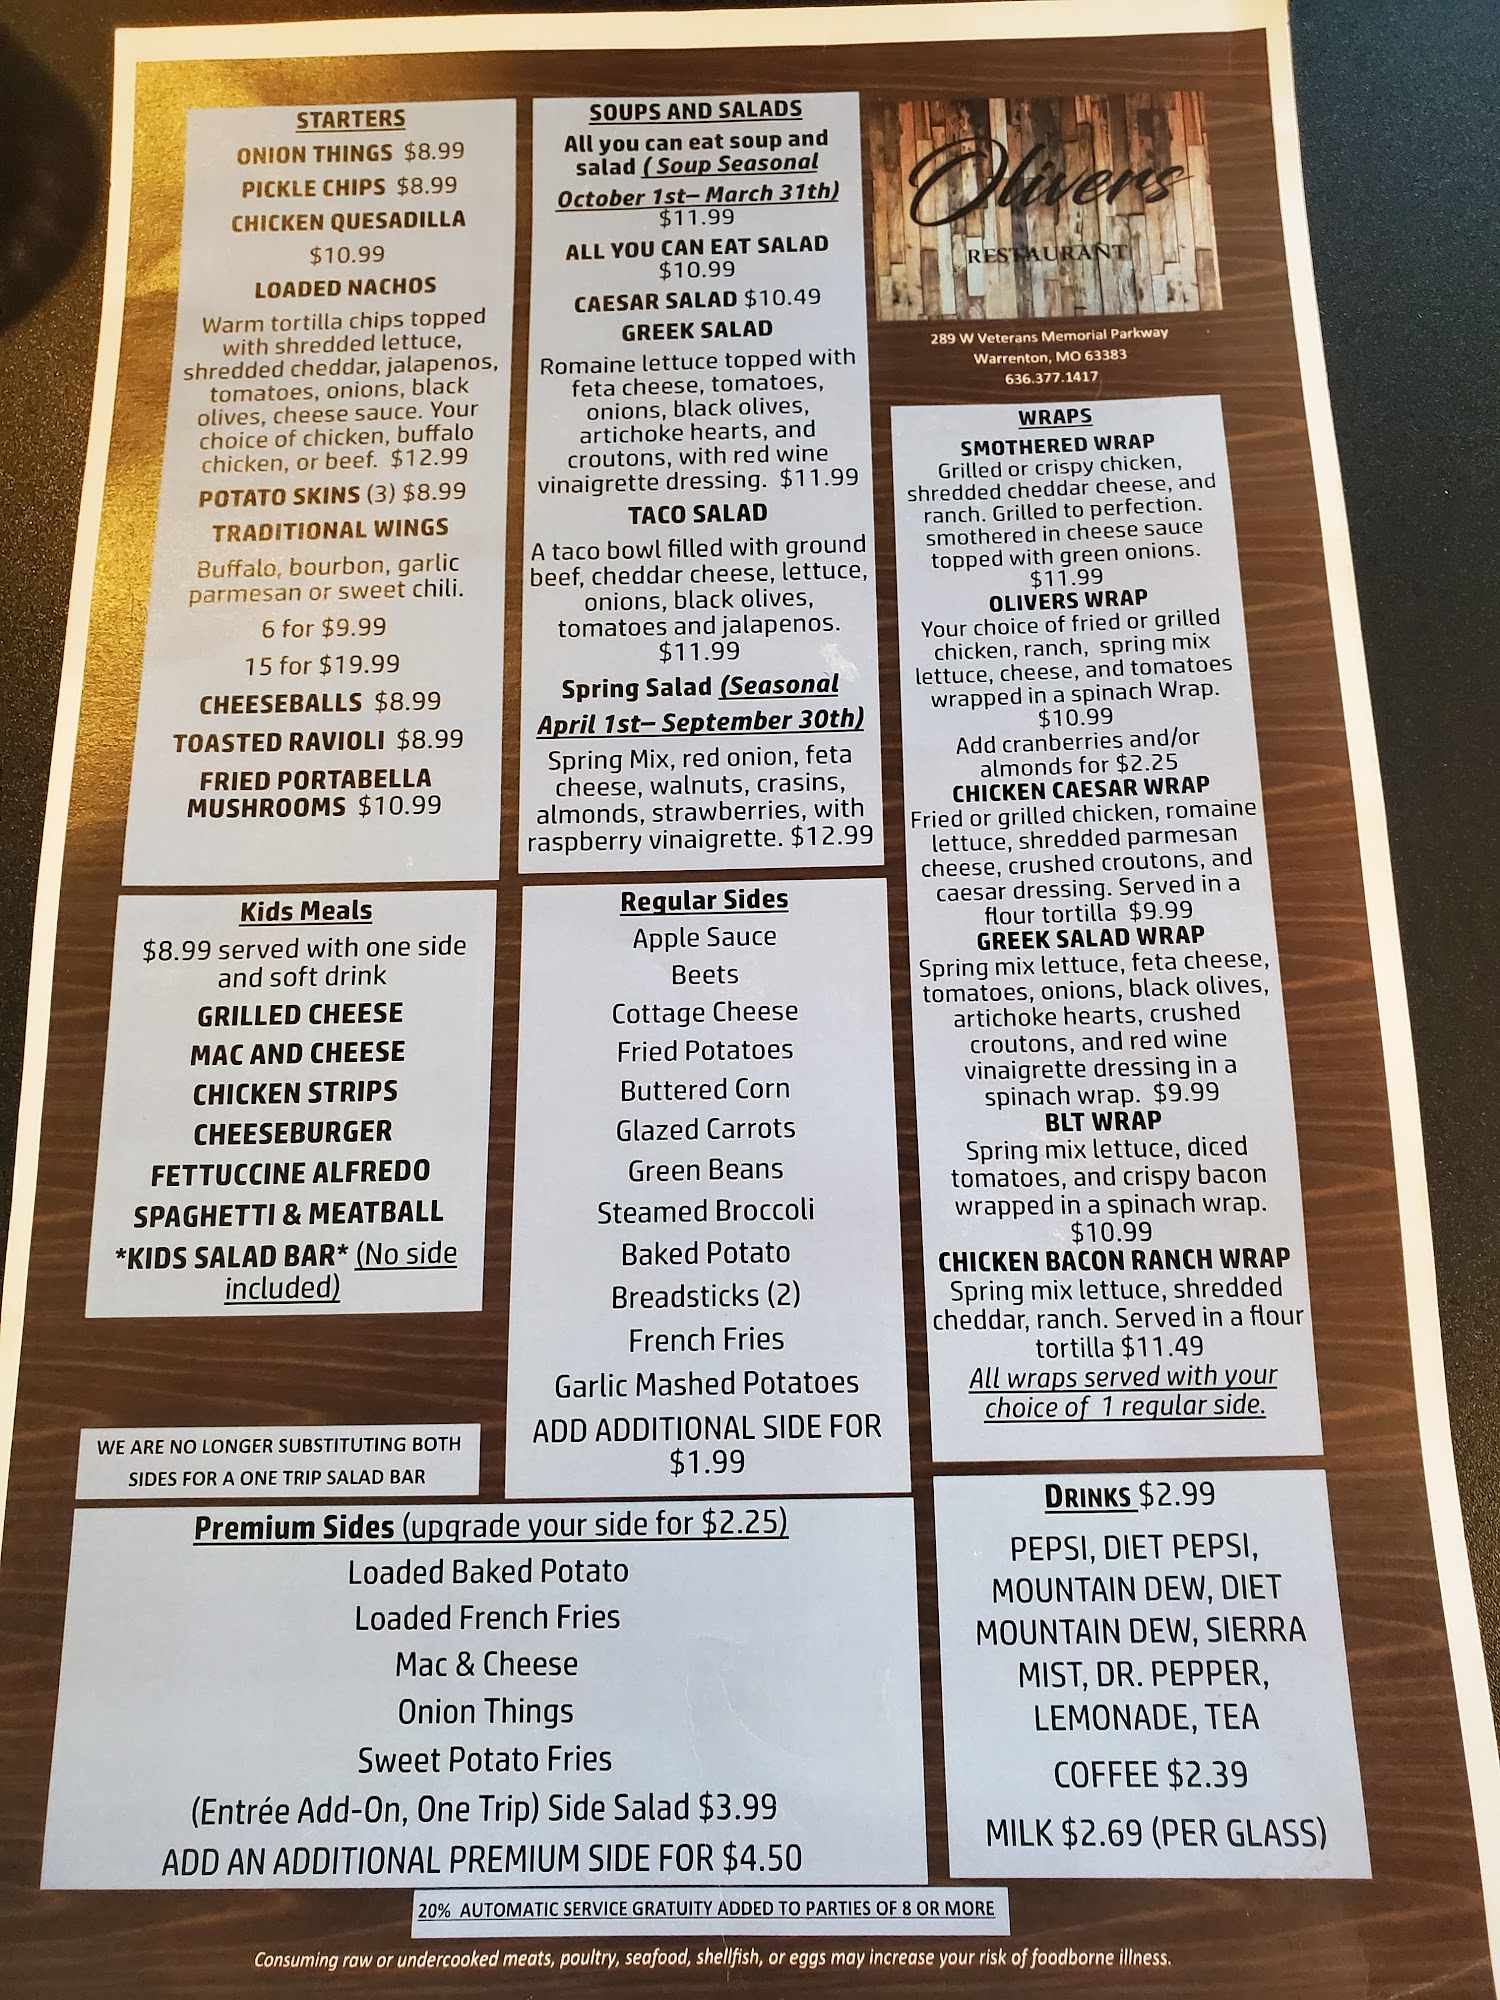 STARTERS
ONION THINGS $8.99
PICKLE CHIPS $8.99
CHICKEN QUESADILLA
$10.99
LOADED NACHOS
Warm tortilla chips topped
with shredded lettuce,
shredded cheddar, jalapenos,
tomatoes, onions, black
olives, cheese sauce. Your
choice of chicken, buffalo
chicken, or beef. $12.99
POTATO SKINS (3) $8.99
TRADITIONAL WINGS
Buffalo, bourbon, garlic
parmesan or sweet chili.
6 for $9.99
15 for $19.99
CHEESEBALLS $8.99
TOASTED RAVIOLI $8.99
FRIED PORTABELLA
MUSHROOMS $10.99
SOUPS AND SALADS
All you can eat soup and
salad ( Soup Seasonal
October 1st– March 31th)
$11.99
ALL YOU CAN EAT SALAD
$10.99
CAESAR SALAD $10.49
GREEK SALAD
Romaine lettuce topped with
feta cheese, tomatoes,
onions, black olives,
artichoke hearts, and
croutons, with red wine
vinaigrette dressing. $11.99
TACO SALAD
A taco bowl filled with ground
beef, cheddar cheese, lettuce,
onions, black olives,
tomatoes and jalapenos.
$11.99
Spring Salad (Seasonal
April 1st– September 30th)
Spring Mix, red onion, feta
cheese, walnuts, crasins,
almonds, strawberries, with
raspberry vinaigrette. $12.99
Olivers
RESTAURANT
289 W Veterans Memorial Parkway
Warrenton, MO 63383
636.377.1417
WRAPS
SMOTHERED WRAP
Grilled or crispy chicken,
shredded cheddar cheese, and
ranch. Grilled to perfection.
smothered in cheese sauce
topped with green onions.
$11.99
OLIVERS WRAP
Your choice of fried or grilled
chicken, ranch, spring mix
lettuce, cheese, and tomatoes
wrapped in a spinach Wrap.
$10.99
Add cranberries and/or
almonds for $2.25
CHICKEN CAESAR WRAP
Fried or grilled chicken, romaine
lettuce, shredded parmesan
cheese, crushed croutons, and
caesar dressing. Served in a
flour tortilla $9.99
GREEK SALAD WRAP
Spring mix lettuce, feta cheese,
tomatoes, onions, black olives,
artichoke hearts, crushed
croutons, and red wine
vinaigrette dressing in a
spinach wrap. $9.99
BLT WRAP
Spring mix lettuce, diced
tomatoes, and crispy bacon
wrapped in a spinach wrap.
$10.99
CHICKEN BACON RANCH WRAP
Spring mix lettuce, shredded
cheddar, ranch. Served in a flour
tortilla $11.49
All wraps served with your
choice of 1 regular side.
Kids Meals
$8.99 served with one side
and soft drink
GRILLED CHEESE
MAC AND CHEESE
CHICKEN STRIPS
CHEESEBURGER
FETTUCCINE ALFREDO
SPAGHETTI & MEATBALL
*KIDS SALAD BAR* (No side
included)
WE ARE NO LONGER SUBSTITUTING BOTH
SIDES FOR A ONE TRIP SALAD BAR
Regular Sides
Apple Sauce
Beets
Cottage Cheese
Fried Potatoes
Buttered Corn
Glazed Carrots
Green Beans
Steamed Broccoli
Baked Potato
Breadsticks (2)
French Fries
Garlic Mashed Potatoes
ADD ADDITIONAL SIDE FOR
$1.99
Premium Sides (upgrade your side for $2.25)
Loaded Baked Potato
Loaded French Fries
Mac & Cheese
Onion Things
Sweet Potato Fries
(Entrée Add-On, One Trip) Side Salad $3.99
ADD AN ADDITIONAL PREMIUM SIDE FOR $4.50
DRINKS $2.99
PEPSI, DIET PEPSI,
MOUNTAIN DEW, DIET
MOUNTAIN DEW, SIERRA
MIST, DR. PEPPER,
LEMONADE, TEA
COFFEE $2.39
MILK $2.69 (PER GLASS)
20% AUTOMATIC SERVICE GRATUITY ADDED TO PARTIES OF 8 OR MORE
Consuming raw or undercooked meats, poultry, seafood, shellfish, or eggs may increase your risk of foodborne illness.